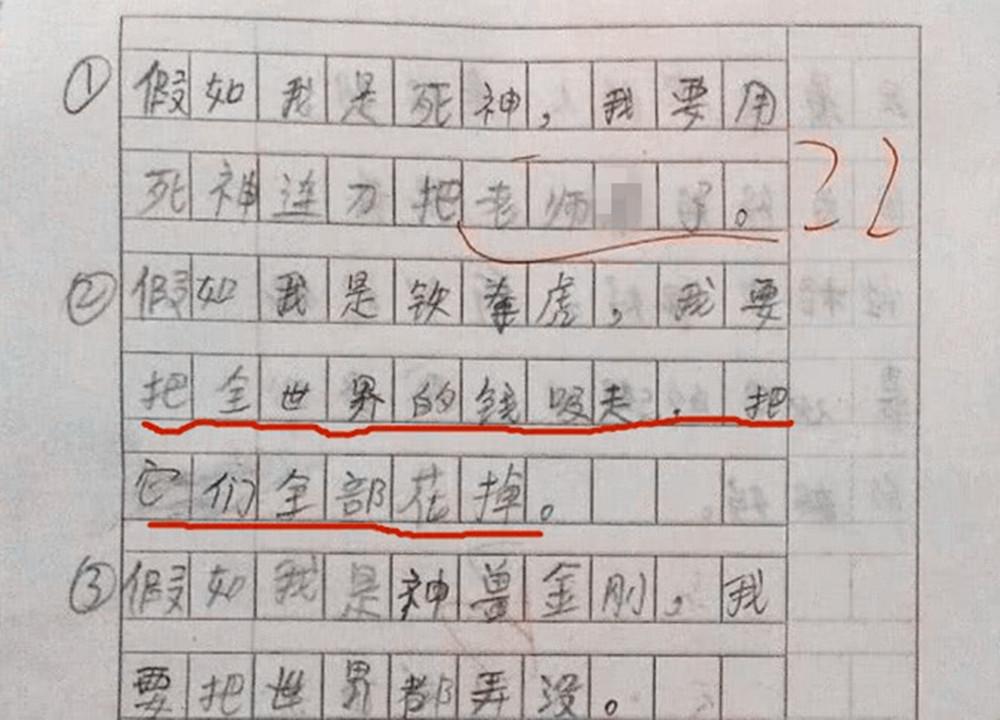 ①假如我是死神,我要用
死神连刀把老师 了。
②假如我是铁拳虎,我要
把全世界的钱吸走,把
它们全部花掉。
③假如我是神兽金刚,我
要把世界都弄没。